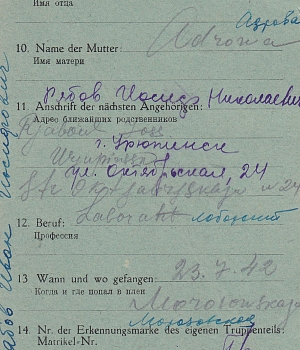 Адрова
Имя отца
10. Name der Mutter:
Adrowa
Имя матери
Рябов Иосиф Николаевич
11. Anschrift der nächsten Angehörigen:
Адрес ближайших родственников
Rjabow Josi
г. Урюпинск
Urjupinsk
ул. Октябрьская, 24
Str Oktjabrskaja № 24
12. Beruf:
Laborant лаборант
Профессия
13 Wann und wo gefangen:
23. 7. 42
Когда и где попал в плен
Morosowskaja
Морозовская
14. Nr. der Erkennungsmarke des eigenen Truppenteils:
Matrikel-Nr.
Иван Иосифович